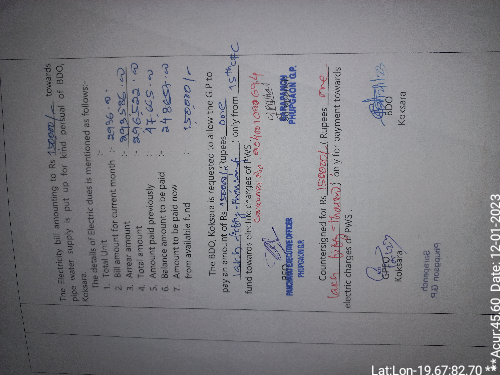 The Electricity bill amounting to Rs 150000/- towards
pipe water supply is put up for kind perusal of BDO,
Koksara.
The details of Electric dues is mentioned as follows:-
1. Total Unit :-
2. Bill amount for current month :- 2936.00
3. Arrear amount :- 293586.00
4. Total amount :- 296522.00
5. Amount paid previously : 47665.00
6. Balance amount to be paid : 248857.00
7. Amount to be paid now
from available fund : 150000/-
The BDO, Koksara is requested to allow the G.P to
pay an amount of Rs 150000/- Rupees one
lakh fifty thousand only from 15th CFC
fund towards electric charges of PWS.
Consumer No
PANCHAYAT EXECUTIVE OFFICER
PHUPGAON G.P
SARAPANCH
PHUPGAON G.P.
Countersigned for Rs 150000/- (Rupees one
lakh fifty thousand) only for payment towards
electric charges of PWS.
GPEO
Koksara
BDO
Koksara
Lat:Lon-19.67:82.70
**Acur:4560 Date:12-01-2023